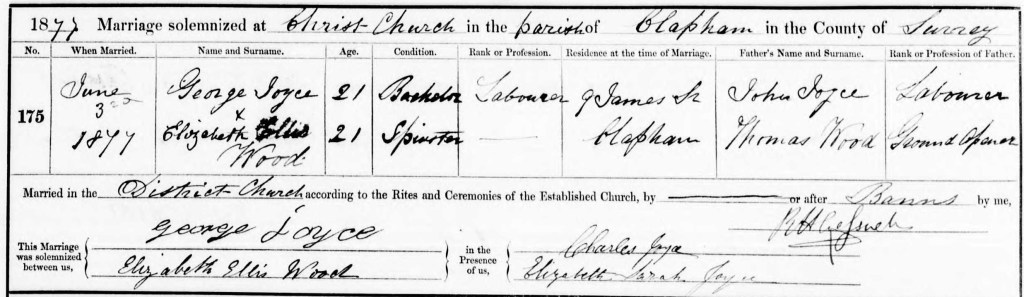 1877 Marriage solemnized at Christ Church in the parish of Clapham in the County of Surrey
No. When Married. Name and Surname. Age. Condition. Rank or Profession. Residence at the time of Marriage. Father's Name and Surname. Rank or Profession of Father.
175 June 3 1877 George Joyce 21 Bachelor Labourer 9 James St John Joyce Labourer
x
Elizabeth Ellis Wood 21 Spinster — Clapham Thomas Wood Ground Opener
Married in the District Church according to the Rites and Ceremonies of the Established Church, by — or after Banns by me,
This Marriage was solemnized between us, George Joyce in the Presence of us, Charles Joyce
Elizabeth Ellis Wood Elizabeth Sarah Joyce